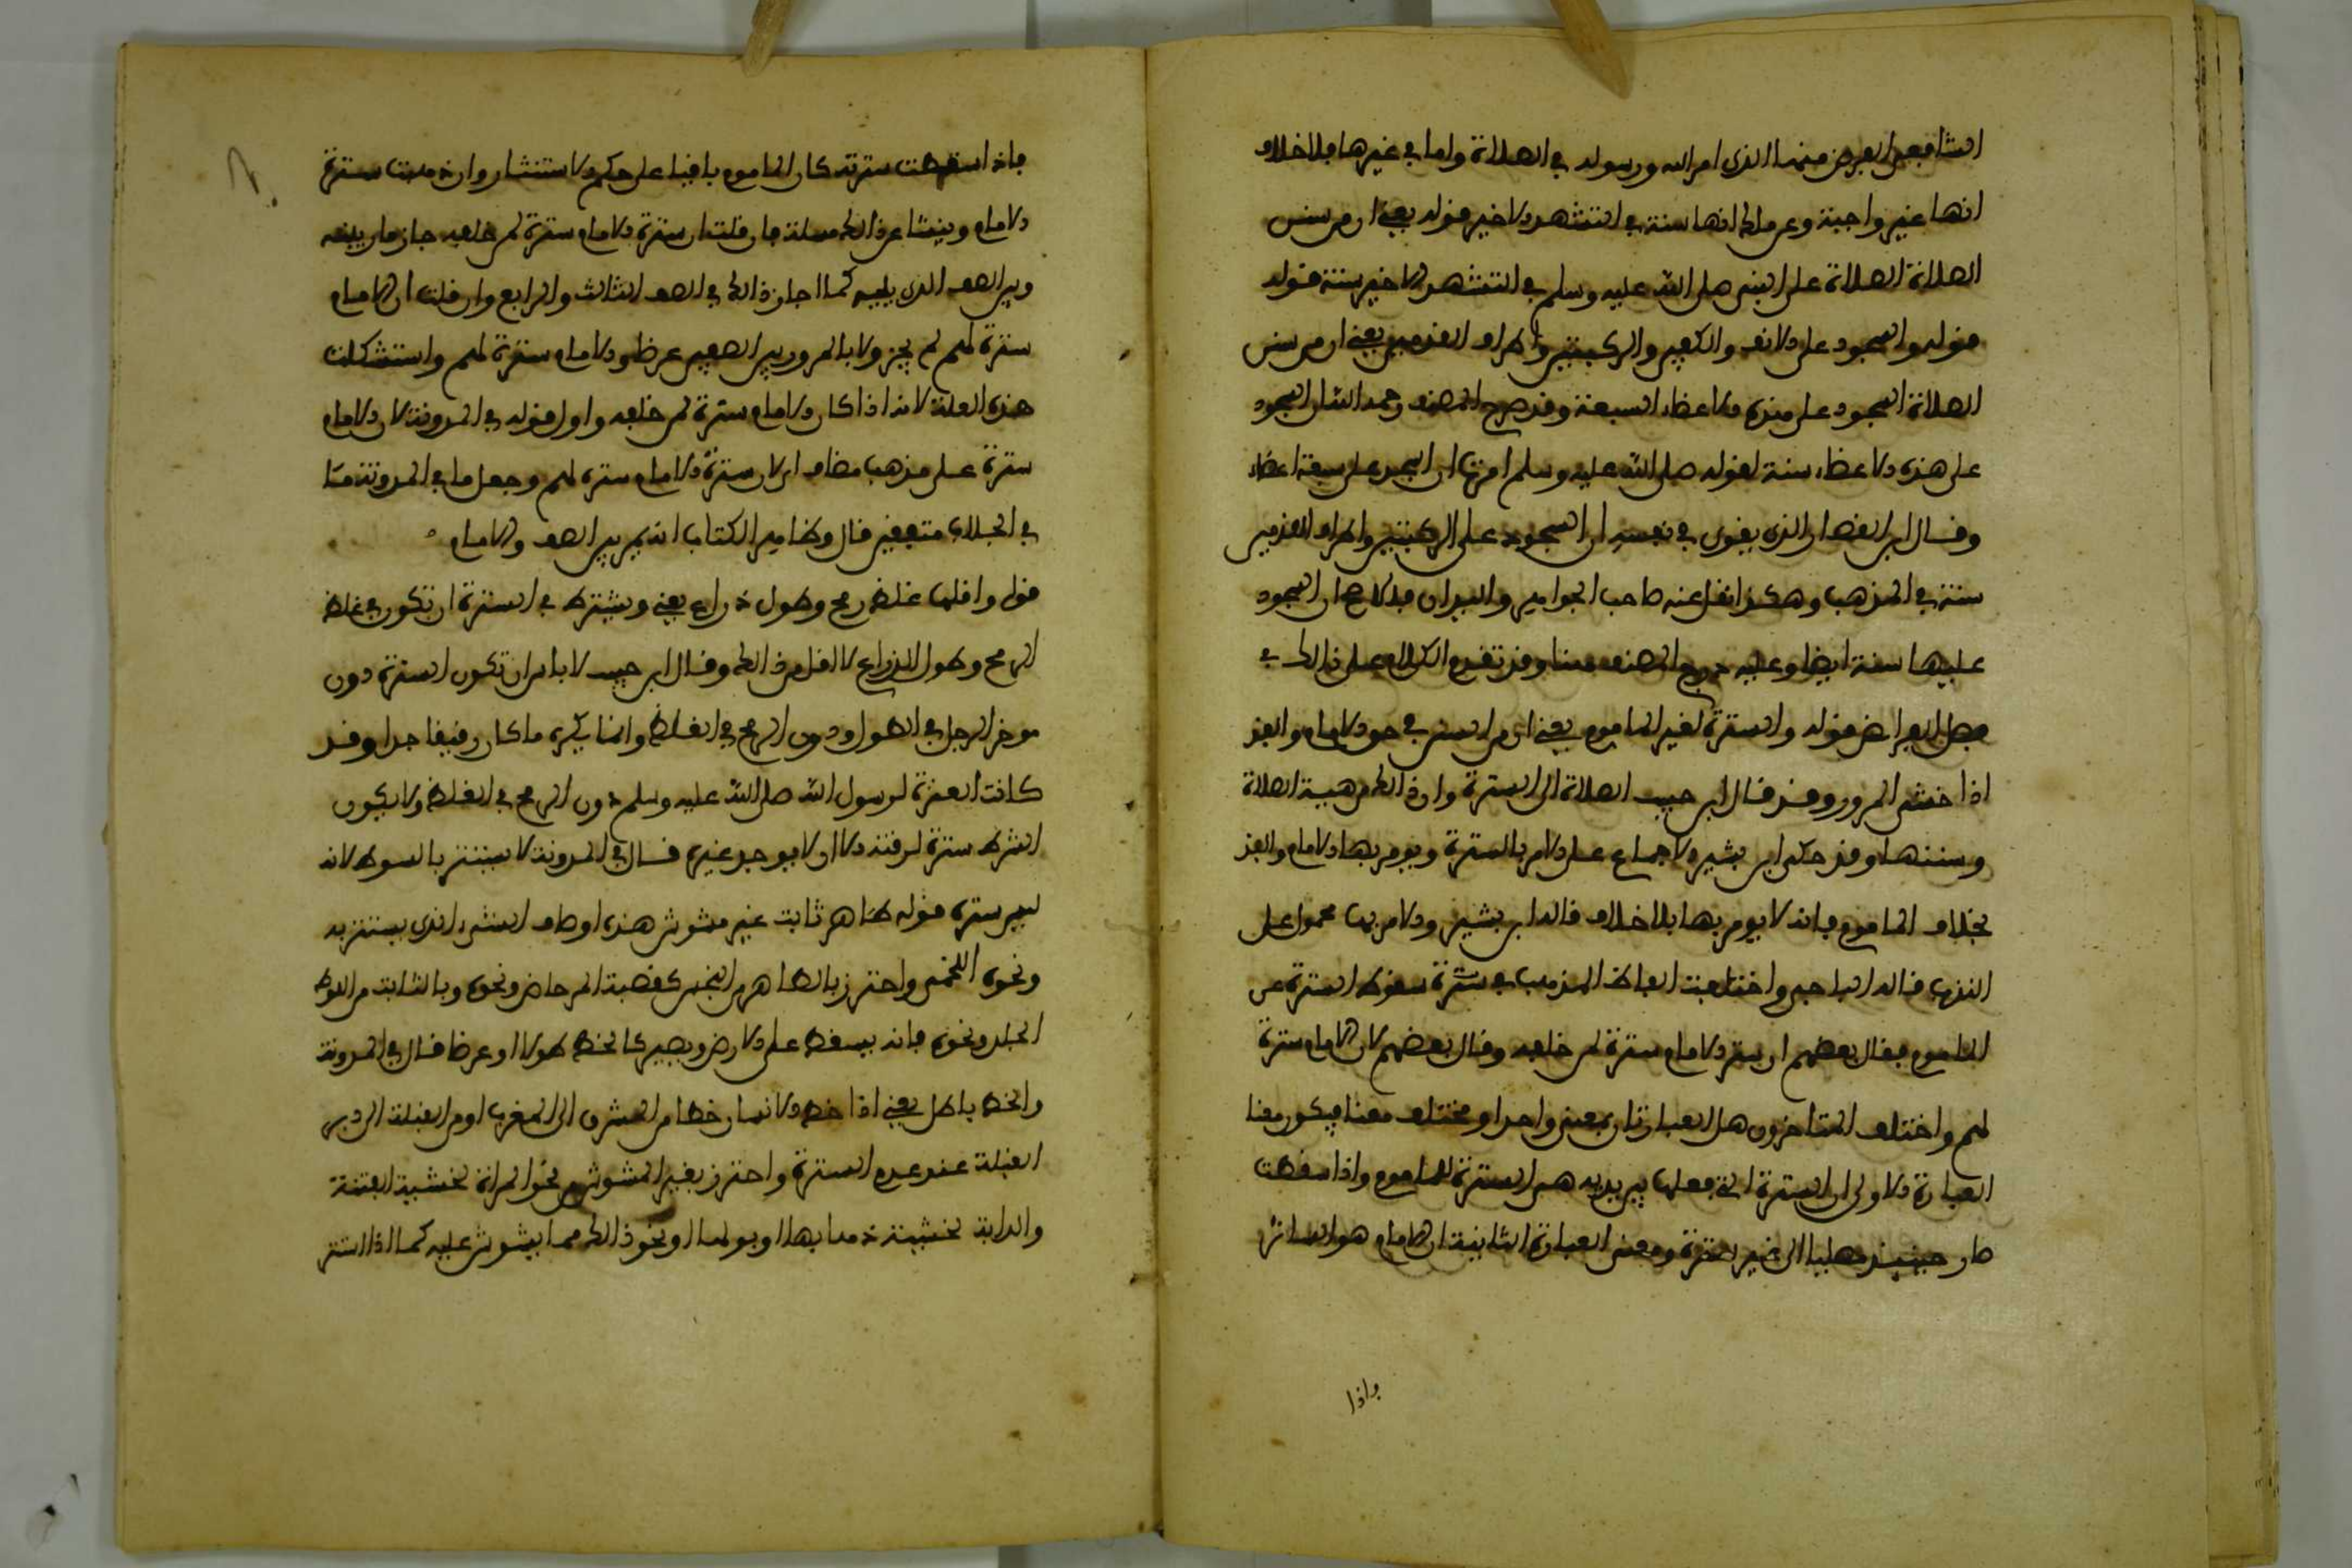 الشافعي الفرض منها الذي امر الله ورسوله في الصلاة واما في غيرها فلا خلاف
انها غير واجبة وعن ملك انها سنة في التشهد الاخير قوله يعني ان من سنن
الصلاة الصلاة على النبي صلى الله عليه وسلم في التشهد الاخير سنة قوله
قوله والسجود على الانف والكفين والركبتين واطراف القدمين يعني ان من سنن
الصلاة السجود على هذه الاعضاء السبعة وقد صرح المصنف رحمه الله ان السجود
على هذه الاعضاء سنة لقوله صلى الله عليه وسلم امرت ان اسجد على سبعة اعضاء
وقال ابن القصار الذي يقوى في نفسي ان السجود على الركبتين واطراف القدمين
سنة في المذهب وهكذا نقل عنه صاحب الجواهر والبيان
عليها سنة ايضا وعليه درج المصنف هنا وقد تقدم الكلام على ذالك في
فصل الفرائض قوله والسترة لغير الماموم يعني ان من السنن في حق الامام والفذ
اذا خشي المرور وقد قال ابن حبيب الصلاة الى السترة وان ذالك من هيبة الصلاة
وسننها وقد حكى ابن بشير الاجماع على الامر بالسترة ويومر بها الامام والفذ
بخلاف الماموم فانه لا يومر بها بلا خلاف قاله ابن بشير والامر بها محمول على
الندب قاله الباجي واختلفت الفاظ المذهب في سترة سقوط السترة عن
الماموم فقال بعضهم ان ستر الامام سترة لمن خلفه وقال بعضهم لان الامام سترة
لهم واختلف المتاخرون هل العبارتان بمعنى واحد او مختلف معنا فيكون معنا
العبارة الاولى ان السترة التي جعلها بين يديه هي السترة للماموم واذا سقطت
صار حينئذ مصليا الى غير سترة ومعنى العبارة الثانية ان الامام هو الساتر
فاذا
فاذا سقطت سترته كان الماموم باقيا على حكم الاستتار وان ذهبت سترة
الامام وينشا عن ذالك مسئلة فان قلت ان سترة الامام سترة لمن خلفه جاز المار بينه
وبين الصف الذي يليه كما اجاز ذالك في الصف الثالث والرابع وان قلت ان الامام
سترة لهم لم يجز ولا بالمرور بين الصفين عرضا والامام سترة لهم واستشكلت
هذه العلة لانه اذا كان الامام سترة لمن خلفه واول قوله في المدونة لان الامام
سترة على حذف مضاف اي لان سترة الامام سترة لهم وجعل ما في المدونة وما
في الجلاب متفقين قال وظاهر الكتاب انه يمر بين الصف والامام
قوله واقلها غلظ رمح وطول ذراع يعني ويشترط في السترة ان تكون في غلظ
الرمح وطول الذراع لا اقل من ذالك وقال ابن حبيب لا باس ان تكون السترة دون
موخر الرحل في الطول ودون الرمح في الغلظ وانما يكره ما كان رقيقا جدا وقد
كانت العنزة لرسول الله صلى الله عليه وسلم دون الرمح في الغلظ ولا يكون
السوط سترة لرقته الا ان لا يوجد غيره قال في المدونة لا يستتر بالسوط لانه
ليس سترة قوله طاهر ثابت غير مشوش هذه اوصاف الشيء الذي يستتر به
ونحوه اللخمي واحترز بالطاهر من النجس كقصبة المرحاض ونحوه وبالثابت من السوط
الجلد ونحوه فانه يسقط على الارض ويصير كالخط طولا او عرضا قال في المدونة
والخط باطل يعني اذا خط الانسان خطا من المشرق الى المغرب او من القبلة الى دبر
القبلة عند عدم السترة واحترز بغير المشوش من نحو المراة لخشية الفتنة
والدابة لخشية ذهابها او بولها او نحو ذالك مما يشوش عليه كما اذا استتر